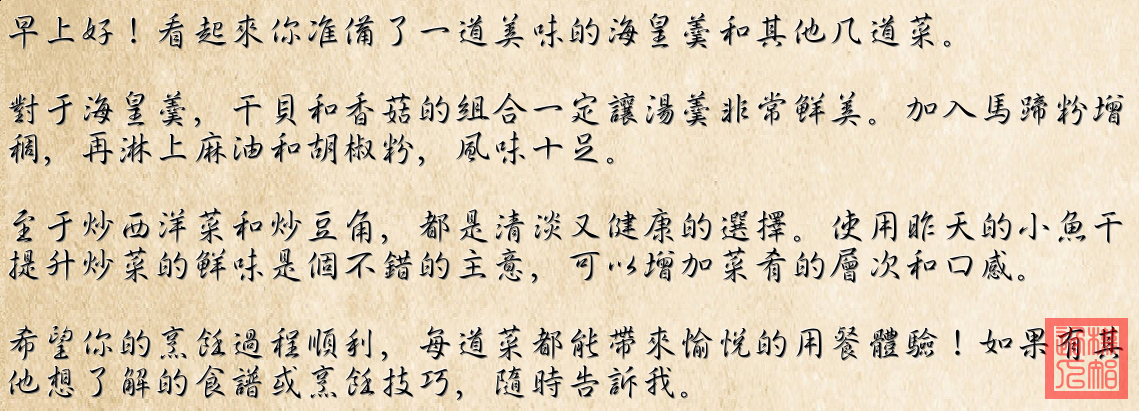 早上好！看起來你准備了一道美味的海皇羹和其他几道菜。
對于海皇羹，干貝和香菇的組合一定讓湯羹非常鮮美。加入馬蹄粉增
稠，再淋上麻油和胡椒粉，風味十足。
至于炒西洋菜和炒豆角，都是清淡又健康的選擇。使用昨天的小魚干
提升炒菜的鮮味是個不錯的主意，可以增加菜肴的層次和口感。
希望你的烹飪過程順利，每道菜都能帶來愉悅的用餐體驗！如果有其
他想了解的食譜或烹飪技巧，隨時告訴我。